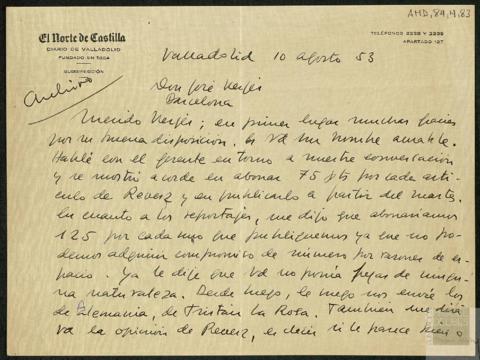 AMD,89,4.83
El Norte de Castilla
DIARIO DE VALLADOLID
FUNDADO EN 1854
SUBDIRECCIÓN
TELÉFONOS 2238 Y 2239
APARTADO 127
Archivo
Valladolid 10 agosto 53
Don José Vergés
Barcelona
Querido Vergés; en primer lugar muchas gracias
por su buena disposición. Es Vd un hombre amable.
Hablé con el gerente en torno a nuestra conversación
y se mostró acorde en abonar 75 pts por cada artí-
culo de Reverz y en publicarlo a partir del martes.
En cuanto a los reportajes, me dijo que abonaríamos
125 por cada uno que publiquemos ya que no po-
demos adquirir compromiso de número por razones de es-
pacio. Ya le dije que Vd no ponía pegas de ningu-
na naturaleza. Desde luego, le ruego nos envíe los
de Alemania, de Tristán La Rosa. También me dirá
Vd la opinión de Reverz, es decir si le parece bien o